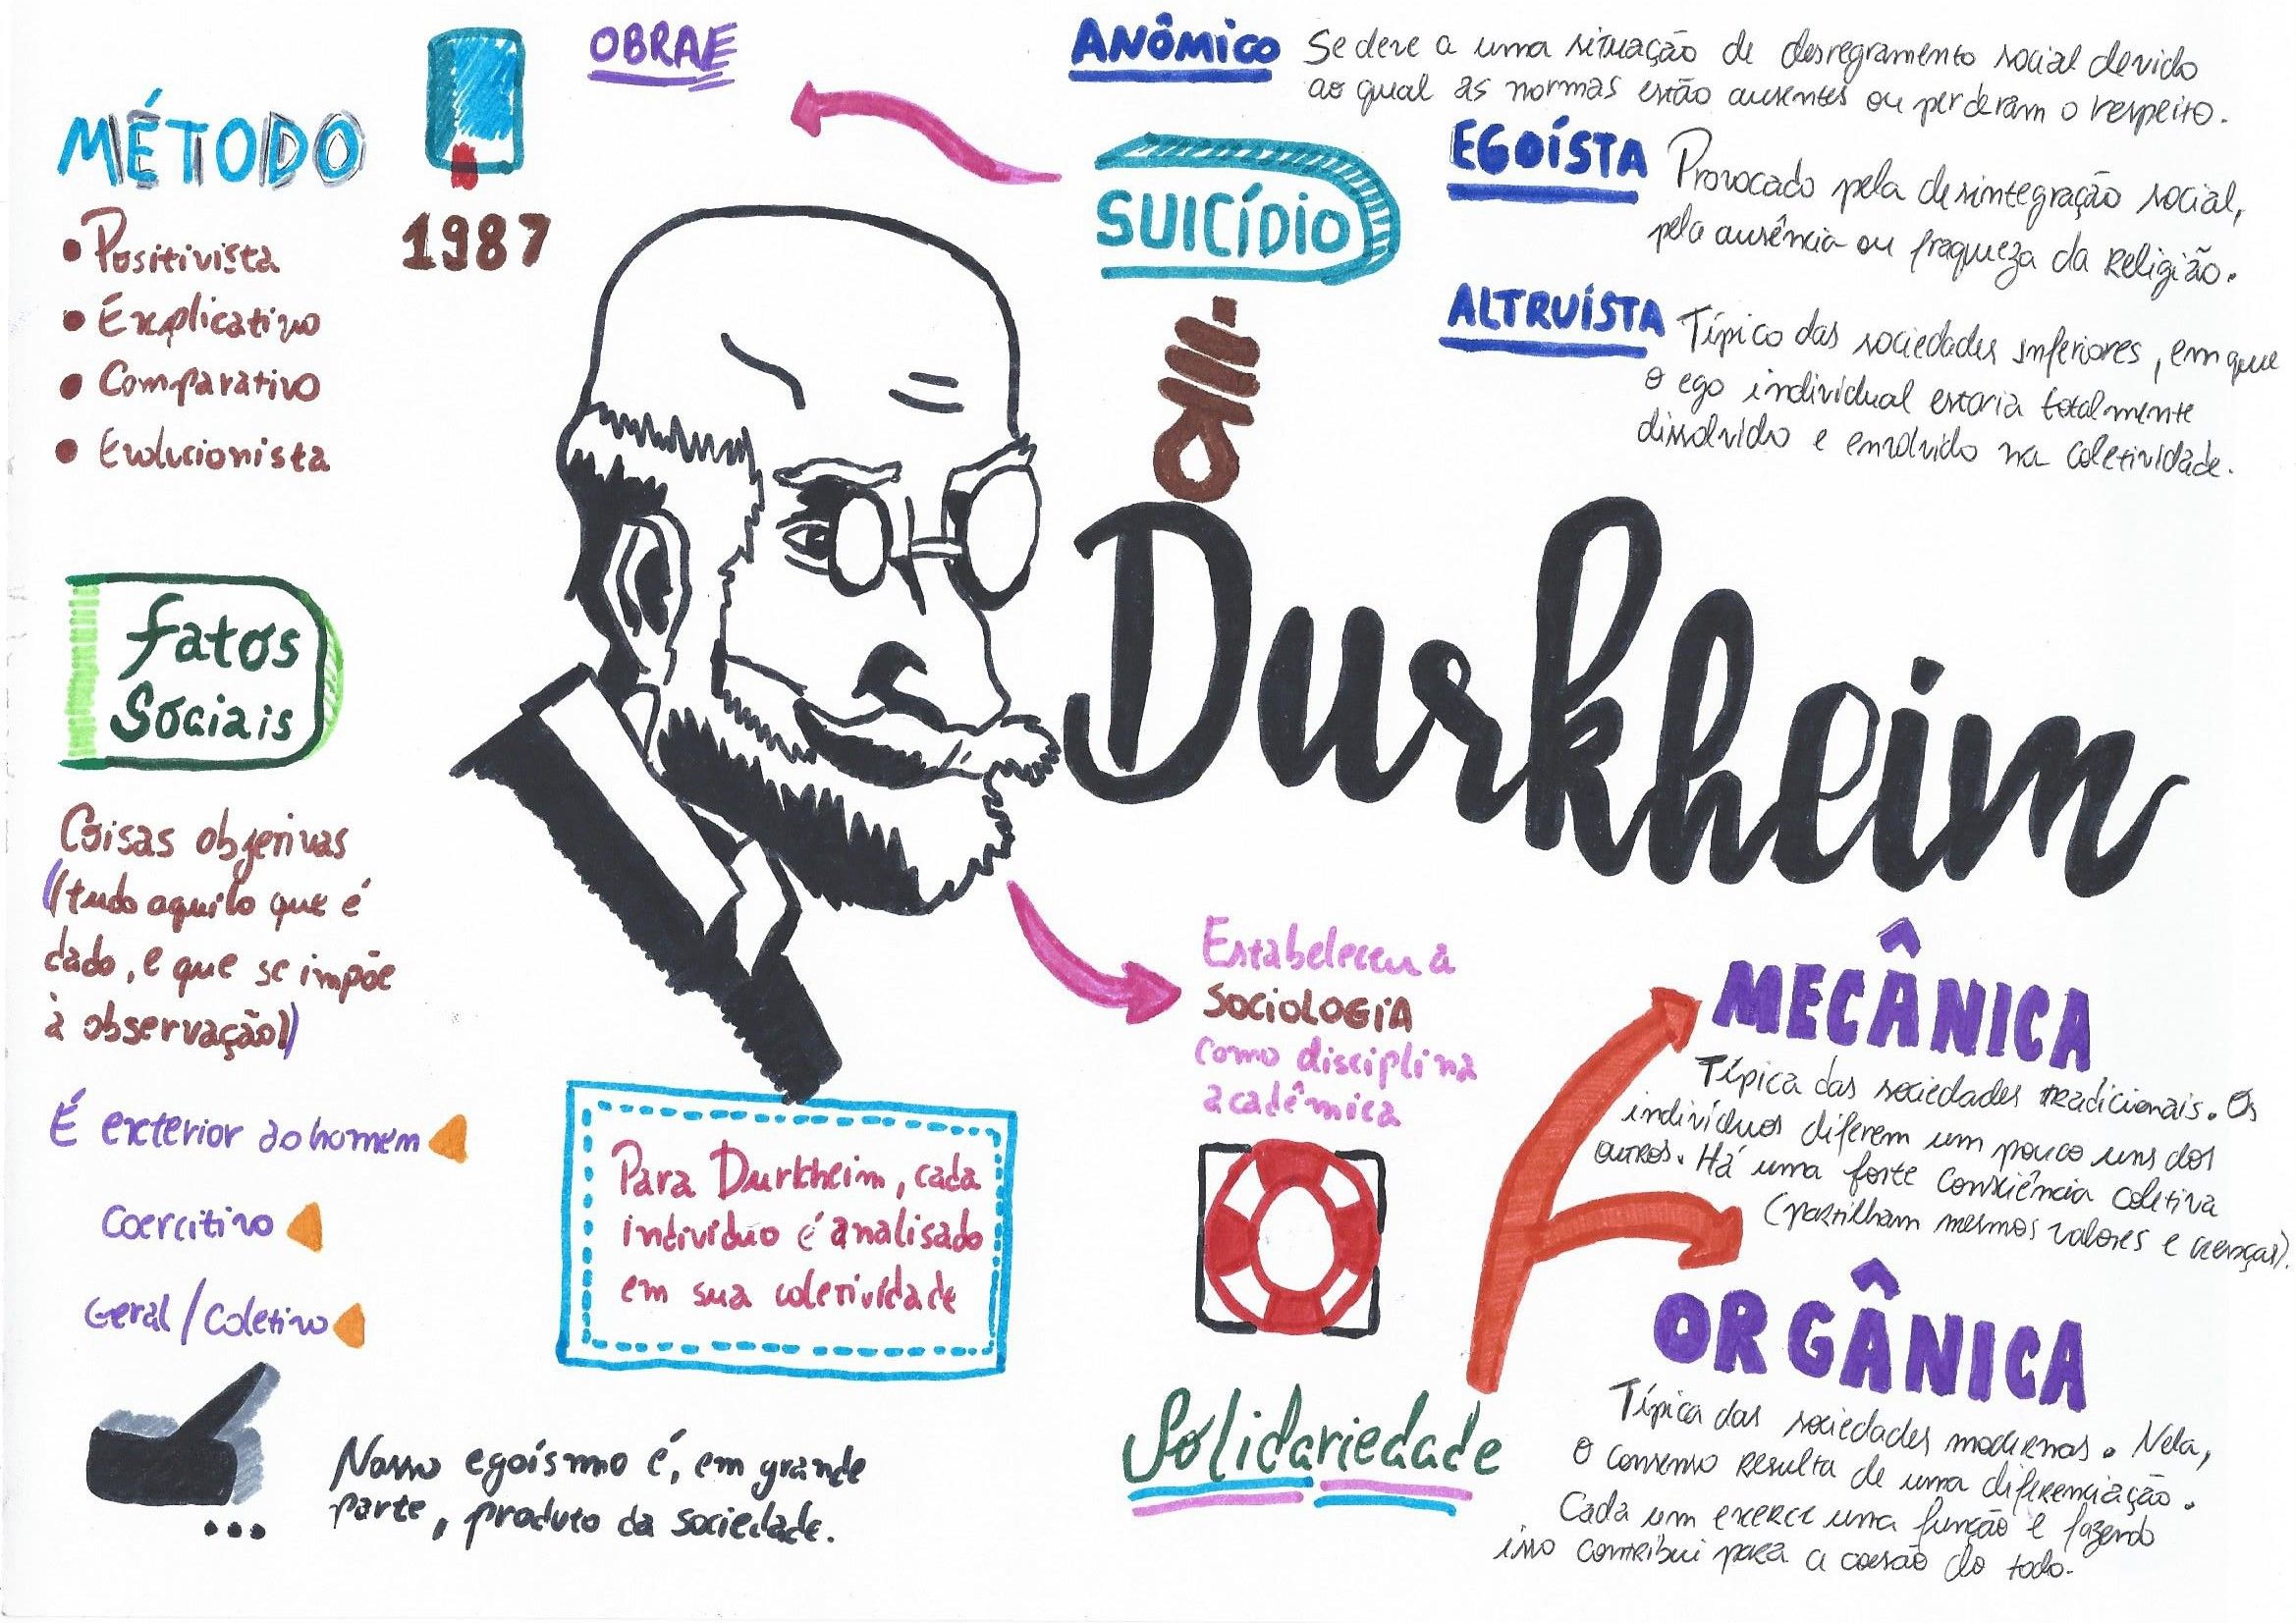 MÉTODO
• Positivista
• Explicativo
• Comparativo
• Evolucionista
1987
OBRAE
SUICÍDIO
ANÔMICO Se deve a uma situação de desregramento social devido
ao qual as normas estão ausentes ou perderam o respeito.
EGOÍSTA Provocado pela desintegração social,
pela ausência ou fraqueza da religião.
ALTRUÍSTA Típico das sociedades inferiores, em que
o ego individual estaria totalmente
dissolvido e envolvido na coletividade.
Durkheim
Fatos
Sociais
Coisas objetivas
(tudo aquilo que é
dado, e que se impõe
à observação)
É exterior ao homem
Coercitivo
Geral/Coletivo
Nosso egoísmo é, em grande
parte, produto da sociedade.
Para Durkheim, cada
indivíduo é analisado
em sua coletividade
Estabeleceu a
SOCIOLOGIA
como disciplina
acadêmica
Solidariedade
MECÂNICA
Típica das sociedades tradicionais. Os
indivíduos diferem um pouco uns dos
outros. Há uma forte consciência coletiva
(partilham mesmos valores e crenças).
ORGÂNICA
Típica das sociedades modernas. Nela,
o consenso resulta de uma diferenciação.
Cada um exerce uma função e fazendo
isso contribui para a coesão do todo.